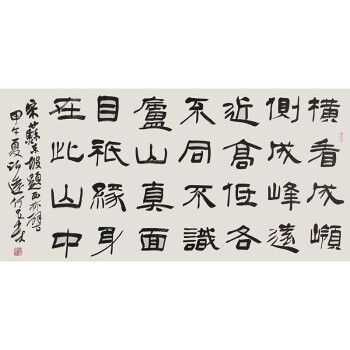 橫看成嶺
側成峰遠
近高低各
不同不識
廬山真面
目祇緣身
在此山中
宋蘇東坡題西林壁
甲午夏